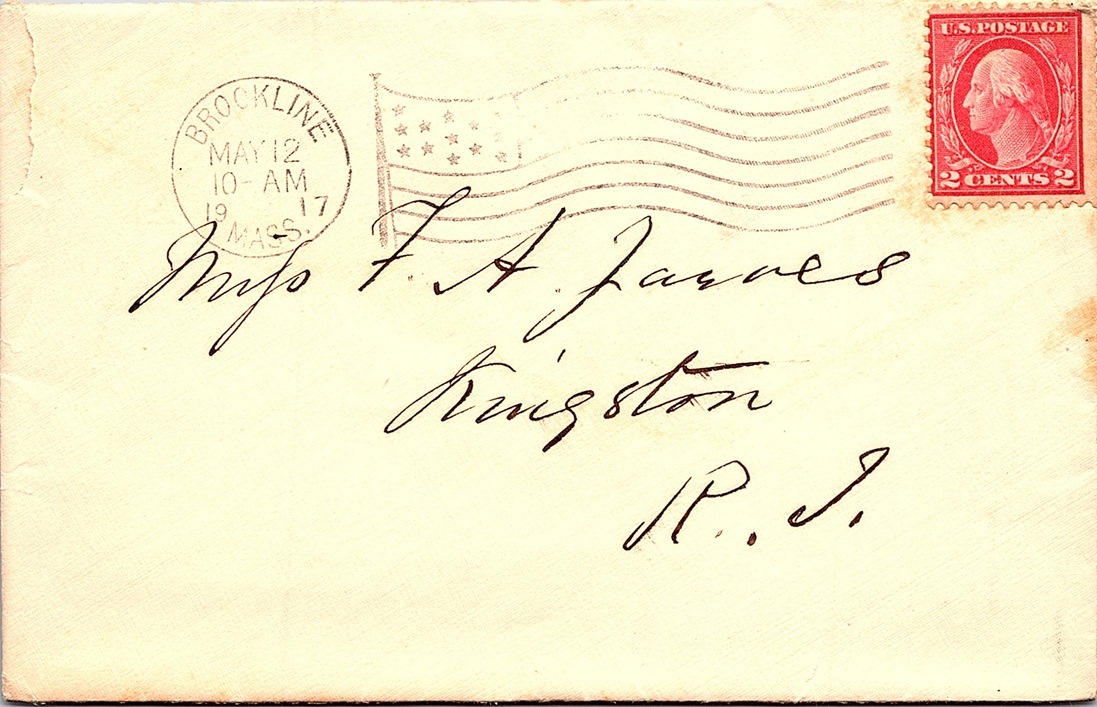 BROOKLINE
MAY 12
10- AM
19 17
MASS.
U.S. POSTAGE
2 CENTS 2
Miss F. A. Jarves
Kingston
R. I.